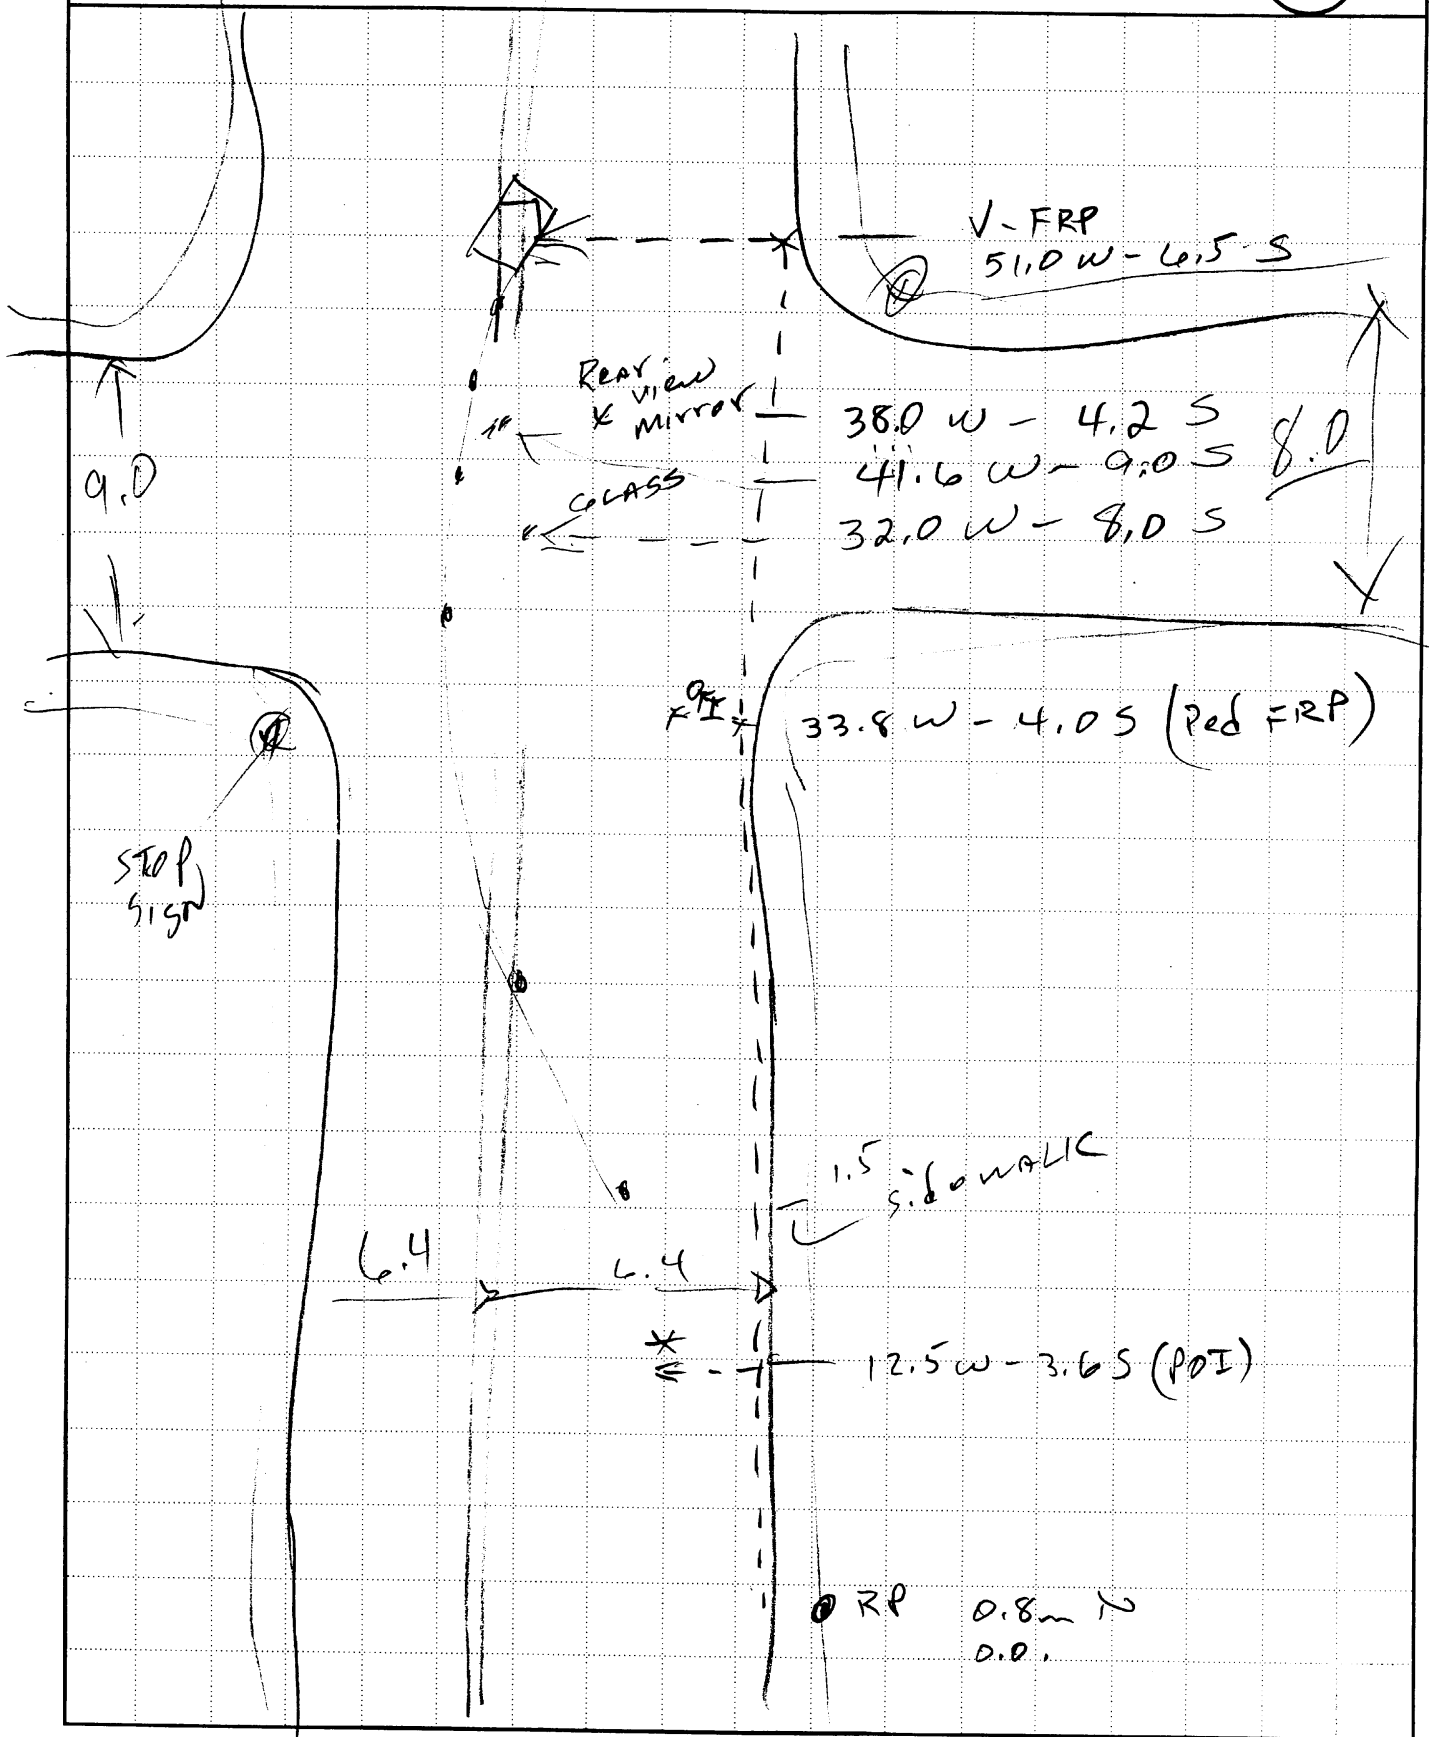 V-FRP
51.0 W - 6.5 S
Rear
x view
mirror
38.0 W - 4.2 S
41.6 W - 9.0 S
8.0
9.0
GLASS
32.0 W - 8.0 S
33.8 W - 4.0 S (Ped FRP)
STOP
SIGN
1.5
sidewALK
6.4
6.4
12.5 W - 3.6 S (POI)
RP 0.8m N
0.0.